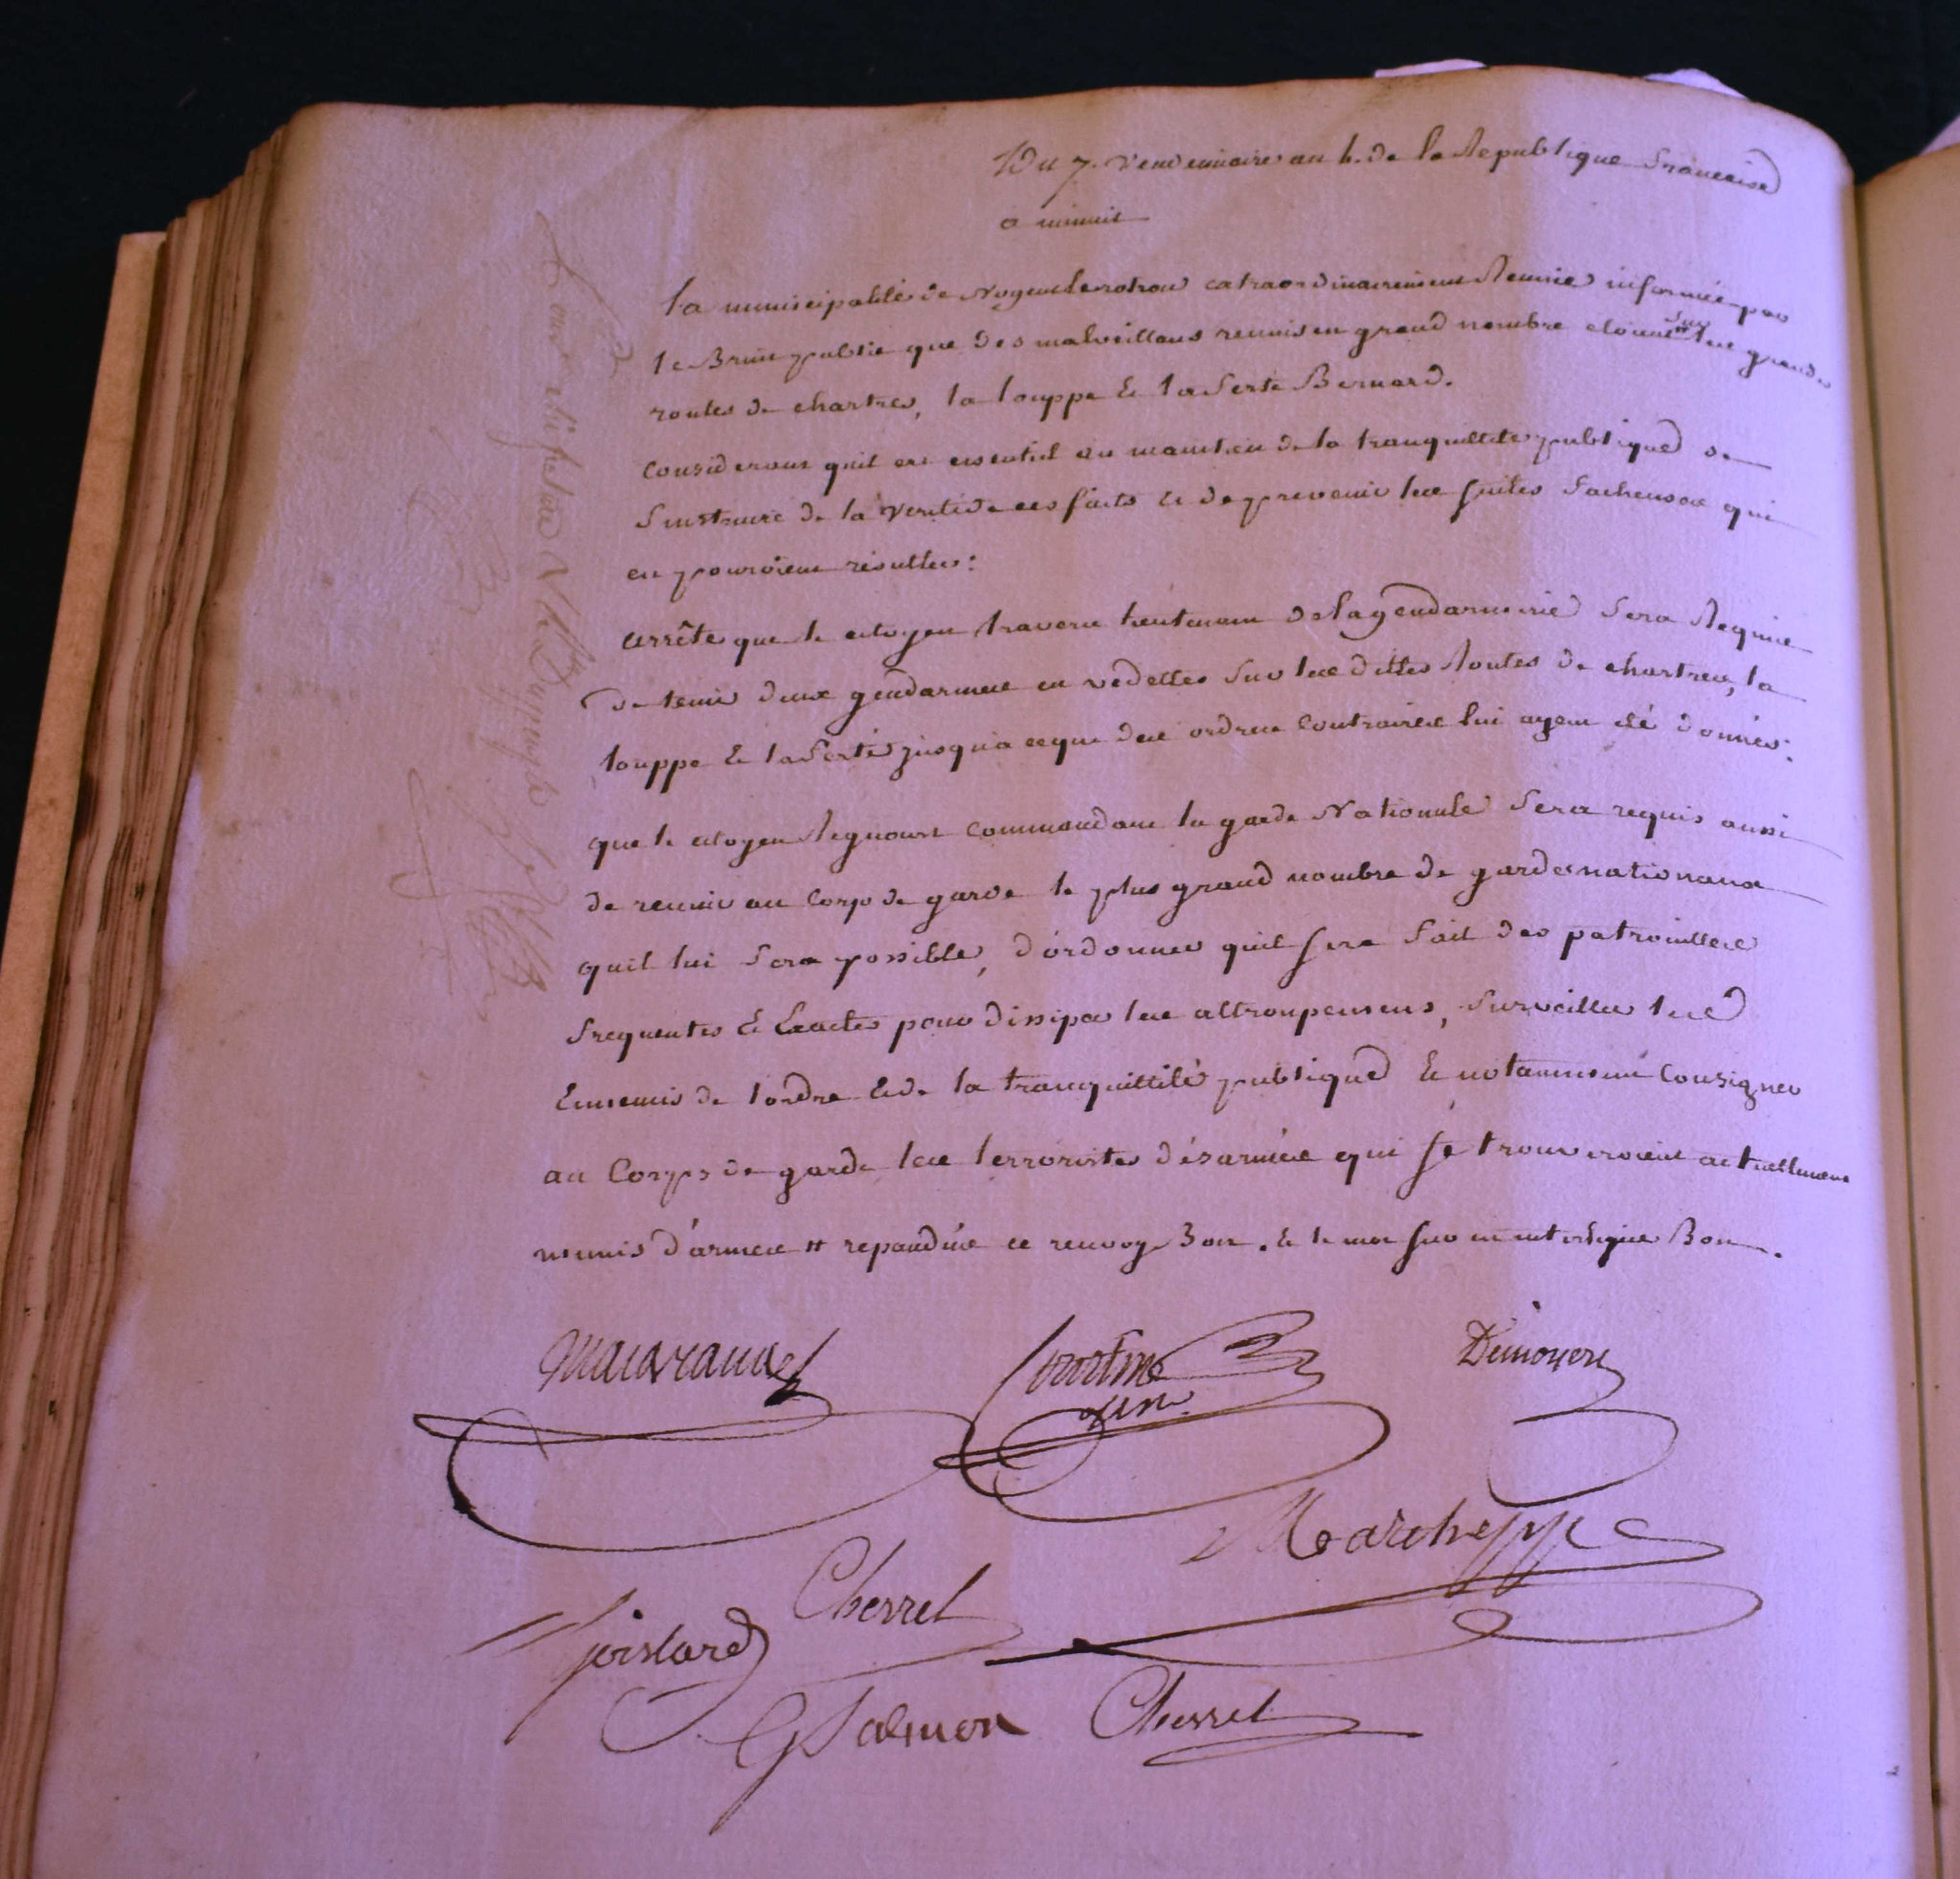 Du 7. Vendemiaire an 4. de la Republique francaise
a minuit
la municipalité de Nogent le rotrou extraordinairement Reunie informée par
le Bruit public que des malveillans reunis en grand nombre etoient sur les grandes
routes de chartres, la louppe & la ferté Bernard.
Considerant quil est essentiel au maintien de la tranquillité publique de
sinstruire de la verité de ces faits & de prevenir les suites facheuses qui
en pouroient résulter :
arrête que le citoyen traverse lieutenant de la gendarmerie sera Requis
de tenir deux gendarmes en vedettes sur les dittes Routes de chartres, la
louppe & la ferté jusqu'a ceque des ordres contraires lui ayent été donnés.
que le citoyen Regnoust commandant la garde Nationale sera requis aussi
de reunir au corps de garde le plus grand nombre de gardes nationaux
quil lui sera possible, d'ordonner quil sera fait des patrouilles
frequentes & Exactes pour dissiper les attroupemens, surveiller les
Ennemis de lordre & de la tranquillité publique & notamment Consigner
au Corps de garde les terroristes désarmés qui se trouveroient actuellement
munis d'armes # repandue ce renvoy Bon. & le mot sur en interligne Bon.
Demoyere
Marcheppe
Cherrel
GSalmon Cherrel